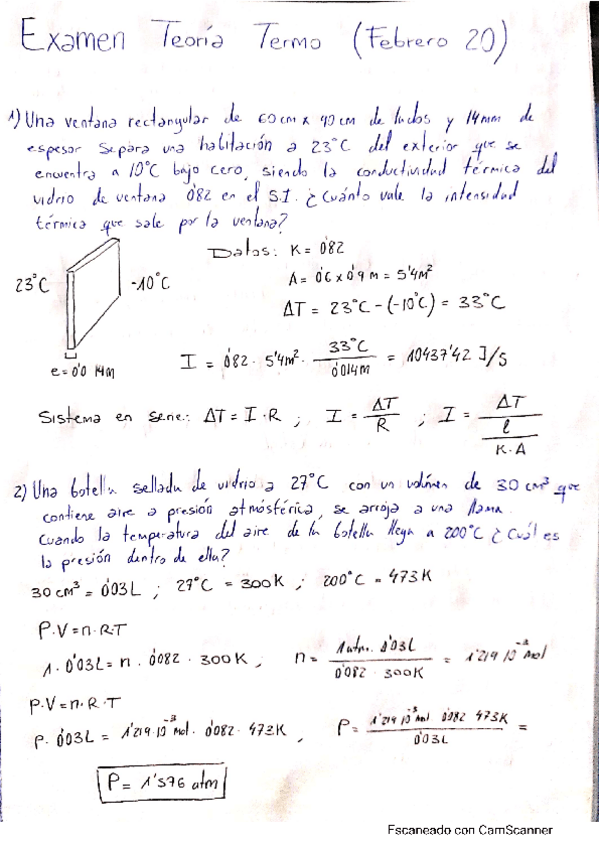 Examen Teoría Termo (Febrero 20)
1) Una ventana rectangular de 60cm x 90cm de lados y 14mm de
espesor separa una habitación a 23°C del exterior que se
encuentra a 10°C bajo cero, siendo la conductividad térmica del
vidrio de ventana 0'82 en el S.I. ¿Cuánto vale la intensidad
térmica que sale por la ventana?
Datos: K = 0'82
23°C
-10°C
A = 0'6 x 0'9 m = 5'4m²
ΔT = 23°C - (-10°C) = 33°C
e = 0'0 14m
I = 0'82 · 5'4m² · 33°C / 0'014m = 10437'42 J/S
Sistema en serie: ΔT = I · R ; I = ΔT / R ; I = ΔT / (l / K·A)
2) Una botella sellada de vidrio a 27°C con un volúmen de 30 cm³ que
contiene aire a presión atmósférica, se arroja a una llama
Cuando la temperatura del aire de la botella llega a 200°C ¿Cuál es
la presión dentro de ella?
30cm³ = 0'03L ; 27°C = 300K ; 200°C = 473K
P·V = n·R·T
1 · 0'03L = n · 0'082 · 300K ; n = 1atm. 0'03L / 0'082 · 300K = 1'219 10⁻³ mol
P·V = n·R·T
P · 0'03L = 1'219·10⁻³mol · 0'082 · 473K , P = 1'219·10⁻³mol 0'082 473K / 0'03L =
P = 1'576 atm
Escaneado con CamScanner